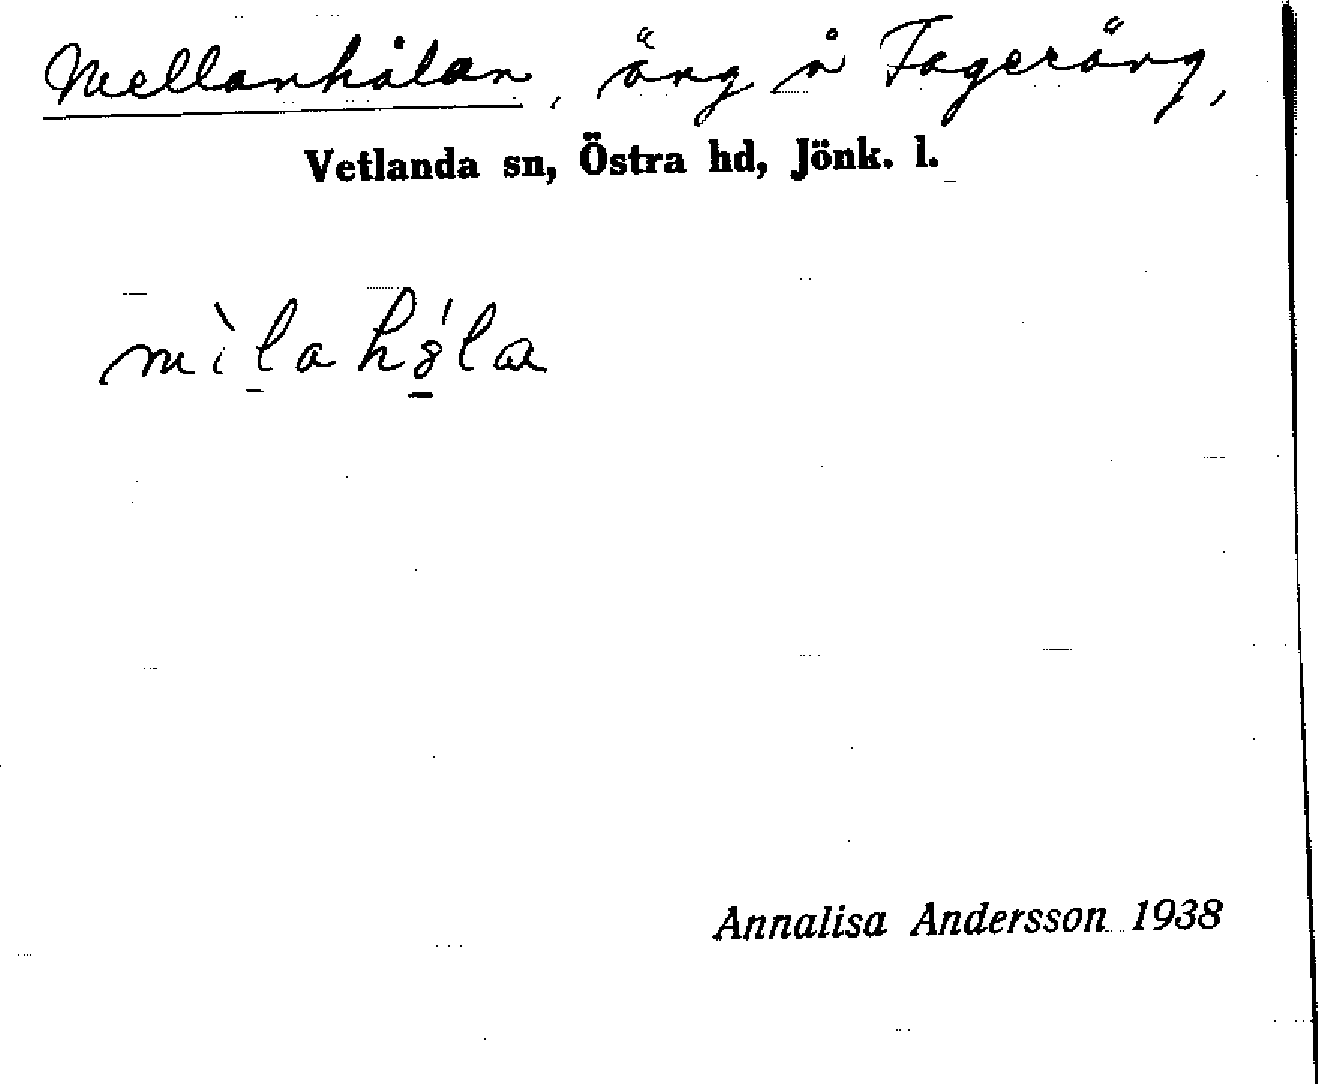 Mellanhålan, äng å Fageräng,
Vetlanda sn, Östra hd, Jönk. l.
Annalisa Andersson 1938